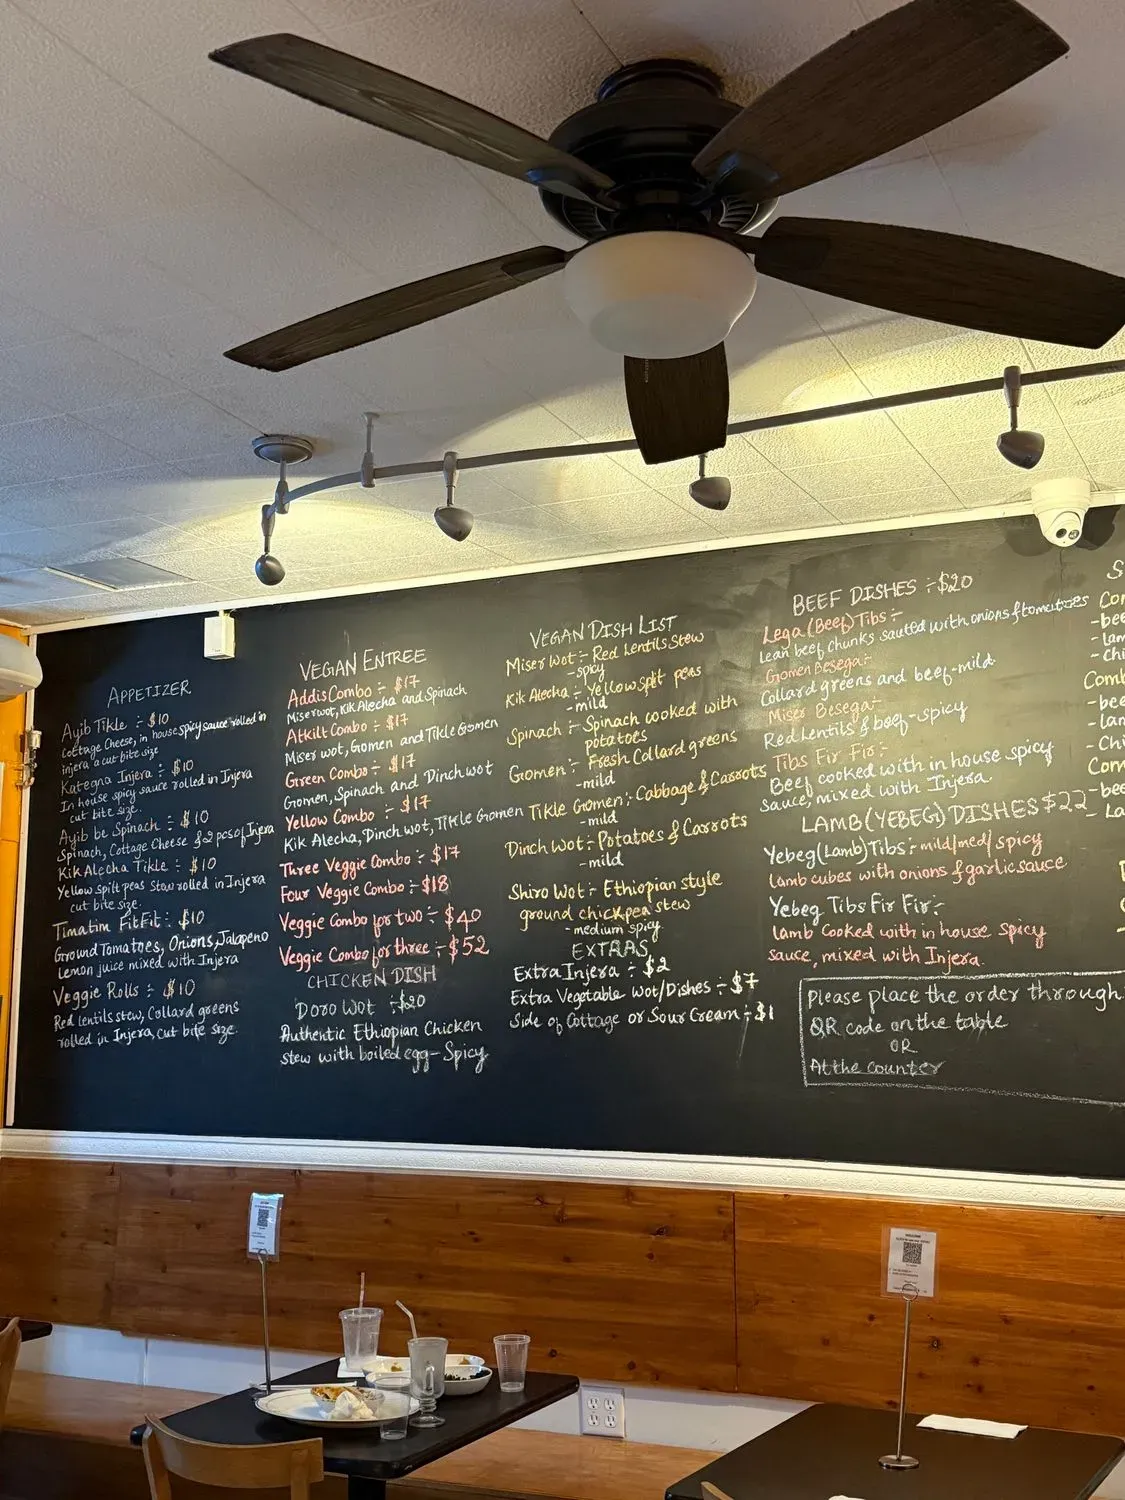 APPETIZER
Ayib Tikle :- $10
Cottage Cheese, in house spicy sauce rolled in
injera a cut bite size
Kategna Injera :- $10
In house spicy sauce rolled in Injera
cut bite size.
Ayib be Spinach :- $10
Spinach, Cottage Cheese & 2 pcs of Injera
Kik Alecha Tikle :- $10
Yellow Split peas stew rolled in Injera
cut bite size.
Timatim FitFit :- $10
Ground Tomatoes, Onions, Jalapeno
Lemon juice mixed with Injera
Veggie Rolls :- $10
Red lentils stew, Collard greens
rolled in Injera, cut bite size.
VEGAN ENTREE
Addis Combo :- $17
Miser wot, Kik Alecha and Spinach
Atkilt Combo :- $17
Miser wot, Gomen and Tikle Gomen
Green Combo :- $17
Gomen, Spinach and Dinch wot
Yellow Combo :- $17
Kik Alecha, Dinch wot, Tikle Gomen
Three Veggie Combo :- $17
Four Veggie Combo :- $18
Veggie Combo for two :- $40
Veggie Combo for three :- $52
CHICKEN DISH
Doro Wot :- $20
Authentic Ethiopian Chicken
stew with boiled egg - Spicy
VEGAN DISH LIST
Miser Wot :- Red Lentils Stew
- spicy
Kik Alecha :- Yellow split peas
- mild
Spinach :- Spinach cooked with
potatoes
Gomen :- Fresh Collard greens
- mild
Tikle Gomen :- Cabbage & Carrots
- mild
Dinch Wot :- Potatoes & Carrots
- mild
Shiro Wot :- Ethiopian style
ground chickpea stew
- medium spicy
EXTRAS
Extra Injera :- $2
Extra Vegetable Wot/Dishes :- $7
Side of Cottage or Sour Cream :- $1
BEEF DISHES :- $20
Lega (Beef) Tibs :-
Lean beef chunks sauted with onions & tomatoes
Gomen Besega :-
Collard greens and beef - mild
Miser Besega :-
Red Lentils & beef - spicy
Tibs Fir Fir :-
Beef cooked with in house spicy
sauce, mixed with Injera.
LAMB (YEBEG) DISHES $22
Yebeg (Lamb) Tibs :- mild/med/spicy
lamb cubes with onions & garlic sauce
Yebeg Tibs Fir Fir :-
lamb cooked with in house spicy
sauce, mixed with Injera.
Please place the order through
QR code on the table
OR
At the counter